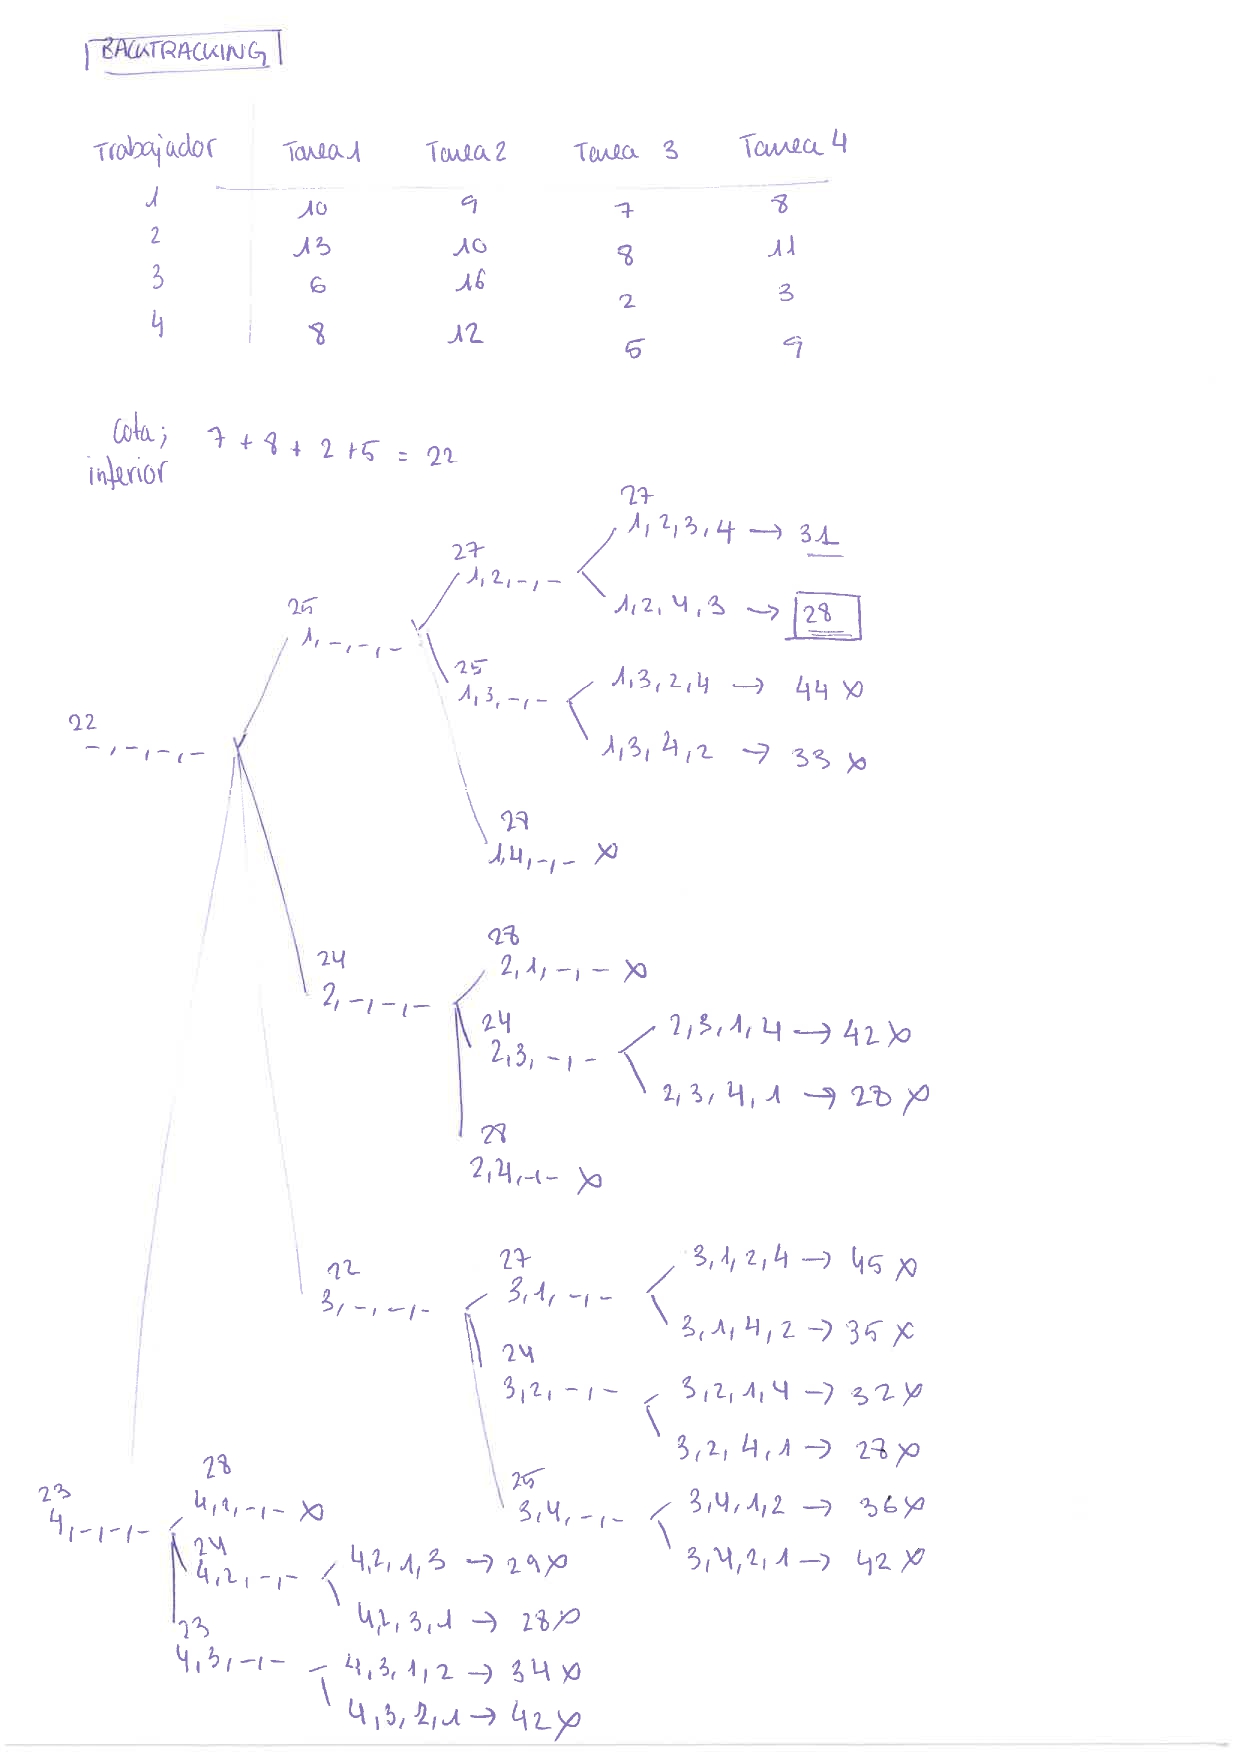 BACKTRACKING
Trabajador Tarea 1 Tarea 2 Tarea 3 Tarea 4
1 10 9 7 8
2 13 10 8 11
3 6 16 2 3
4 8 12 5 9
Cota; 7 + 8 + 2 + 5 = 22
inferior
27
1, 2, 3, 4 → 31
27
1, 2, -, -
1, 2, 4, 3 → 28
25
1, -, -, -
25
1, 3, -, -
1, 3, 2, 4 → 44 x
1, 3, 4, 2 → 33 x
22
-, -, -, -
1, 4, -, - x
24
2, -, -, -
28
2, 1, -, - x
24
2, 3, -, -
2, 3, 1, 4 → 42 x
2, 3, 4, 1 → 28 x
28
2, 4, -, - x
22
3, -, -, -
27
3, 1, -, -
3, 1, 2, 4 → 45 x
3, 1, 4, 2 → 35 x
24
3, 2, -, -
3, 2, 1, 4 → 32 x
3, 2, 4, 1 → 28 x
25
3, 4, -, -
3, 4, 1, 2 → 36 x
3, 4, 2, 1 → 42 x
23
4, -, -, -
28
4, -, - x
24
4, 2, -, -
4, 2, 1, 3 → 29 x
4, 2, 3, 1 → 28 x
23
4, 3, -, -
4, 3, 1, 2 → 34 x
4, 3, 2, 1 → 42 x